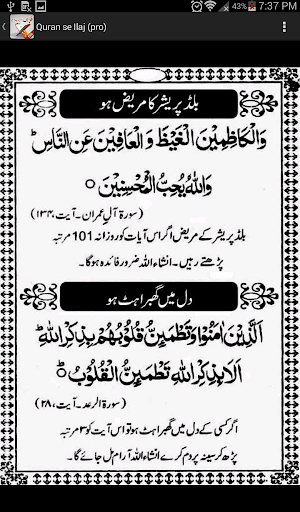 7:37 PM
Quran se Ilaj (pro)
بلڈ پریشر کا مریض ہو
وَالْكَاظِمِيْنَ الْغَيْظَ وَالْعَافِيْنَ عَنِ النَّاسِ ط
وَاللهُ يُحِبُّ الْمُحْسِنِيْنَ ○
(سورۃ آلِ عمران ۔ آیت، ۱۳۴)
بلڈ پریشر کے مریض اگر اس آیات کو روزانہ 101 مرتبہ
پڑھتے رہیں ۔ انشاء اللہ ضرور فائدہ ہوگا ۔
دل میں گھبراہٹ ہو
اَلَّذِيْنَ اٰمَنُوْا وَتَطْمَئِنُّ قُلُوْبُهُمْ بِذِكْرِ اللهِ ط
اَلَا بِذِكْرِ اللهِ تَطْمَئِنُّ الْقُلُوْبُ ط○
(سورۃ الرعد ۔ آیت، ۲۸)
اگر کسی کے دل میں گھبراہٹ ہو تو اس آیت کو 3 مرتبہ
پڑھ کر سینہ پر دم کرے انشاء اللہ آرام مل جائے گا ۔